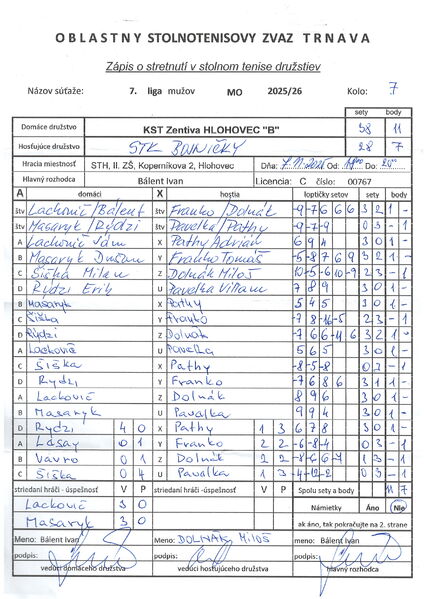 OBLASTNY STOLNOTENISOVY ZVAZ TRNAVA
Zápis o stretnutí v stolnom tenise družstiev
Názov súťaže: 7. liga mužov MO 2025/26 Kolo: 7
sety body
Domáce družstvo KST Zentiva HLOHOVEC "B" 38 11
Hosťujúce družstvo STK BOJNIČKY 28 7
Hracia miestnosť STH, II. ZŠ, Koperníkova 2, Hlohovec Dňa: 7.11.2025 Od: Do:
Hlavný rozhodca Bálent Ivan Licencia: C číslo: 00767
A domáci X hostia loptičky setov sety body
štv Lachovič/Bálent štv Franko/Dolnák -9 -7 6 6 6 3 2 1 -
štv Masaryk/Rydzi štv Pavelka/Pathy -9 -7 -9 - 1
A Lachovič Ján X Pathy Adrián 6 9 4 3 0 1 -
B Masaryk Dušan Y Franko Tomáš -5 -8 7 6 9 3 2 1 -
C Šiška Milan Z Dolnák Miloš 2 3 - 1
D Rydzi Erik U Pavelka Viliam 7 8 9 3 0 1 -
B Masaryk X Pathy 5 4 5 3 0 1 -
C Šiška Y Franko - 1
D Rydzi Z Dolnák 3 2 1 -
A Lachovič U Pavelka 5 6 5 3 0 1 -
C Šiška X Pathy -8 -5 -8 0 3 - 1
D Rydzi Y Franko -7 6 8 6 3 1 1 -
A Lachovič Z Dolnák 8 9 6 3 0 1 -
B Masaryk U Pavalka 9 9 4 3 0 1 -
D Rydzi 4 0 X Pathy 1 3 6 7 8 3 0 1 -
A Lasay 0 1 Y Franko 2 2 -6 -8 -4 0 3 - 1
B Vavro 0 1 Z Dolnák 2 2 1 3 - 1
C Šiška 0 4 U Pavalka 1 3 -4 -12 -2 0 3 - 1
striedaní hráči - úspešnosť V P striedaní hráči - úspešnosť V P Spolu sety a body 11 7
Lachovič 3 0 Námietky Áno Nie
Masaryk 3 0 ak áno, tak pokračujte na 2. strane
Meno: Bálent Ivan Meno: DOLNÁK MILOŠ Meno: Bálent Ivan
podpis: podpis: podpis:
vedúci domáceho družstva vedúci hosťujúceho družstva hlavný rozhodca